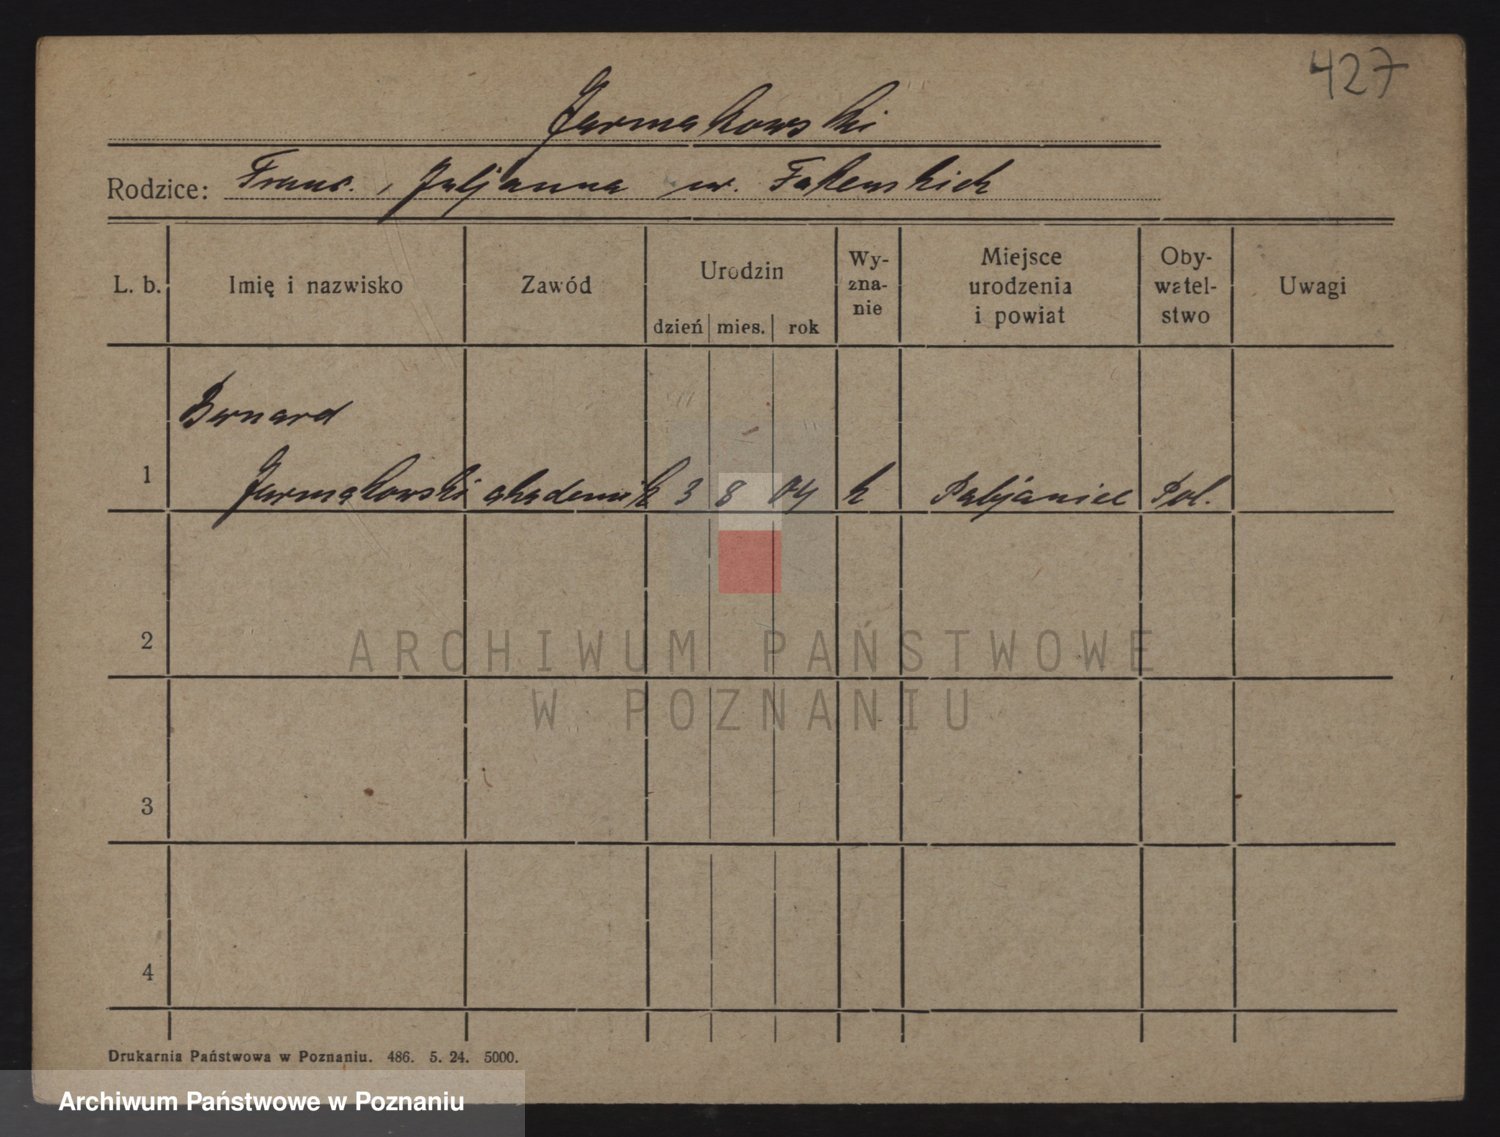 427
Jarmakowski
Rodzice: Franc., Juljanna
L. b. Imię i nazwisko Zawód Urodzin dzień mies. rok Wy-zna-nie Miejsce urodzenia i powiat Oby-watel-stwo Uwagi
Bernard
1 Jarmakowski akademik 3 8 04 k Pabjanice Pol.
2
ARCHIWUM PAŃSTWOWE
W POZNANIU
3
4
Drukarnia Państwowa w Poznaniu. 486. 5. 24. 5000.
Archiwum Państwowe w Poznaniu